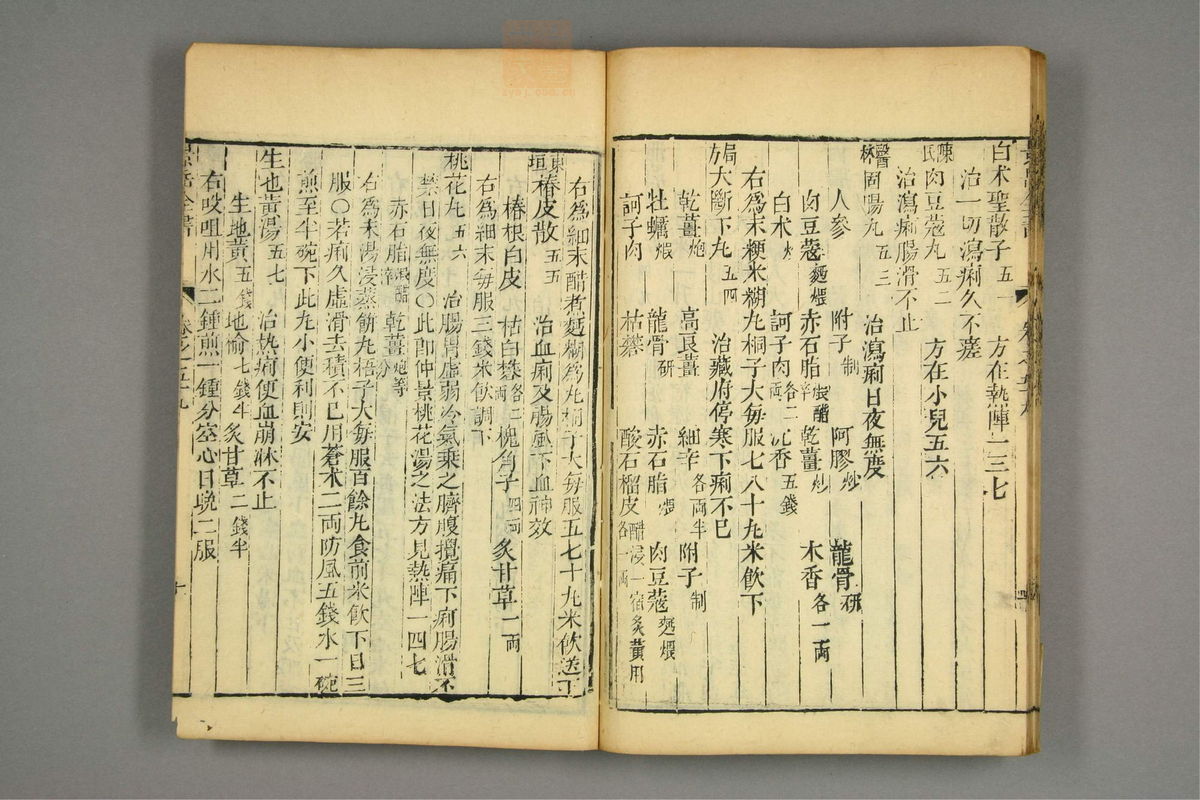 白术聖散子 五一 方在熱陣一三七
治一切瀉痢久不瘥
陳氏肉豆蔻丸 五二 方在小兒五六
治瀉痢腸滑不止
醫林固腸丸 五三 治瀉痢日夜無度
人參 附子制 阿膠炒 龍骨研
肉豆蔻麵煨 赤石脂醋 乾薑炒 木香各一兩
白术炒 訶子肉各二 沉香五錢
右為末粳米糊丸桐子大每服七八十丸米飲下
局方大斷下丸 五四 治藏府停寒下痢不已
乾薑炮 高良薑 細辛各両半 附子制
牡蠣煆 龍骨研 赤石脂煨 肉豆蔻麵煨
訶子肉 枯礬 酸石榴皮醋浸一宿炙黃用各一両
右為細末醋煮麵糊為丸桐子大每服五七十丸米飲送下
東垣椿皮散 五五 治血痢及腸風下血神效
椿根白皮 枯白礬各二両 槐角子四両 炙甘草一両
右為細末每服三錢米飲調下
桃花丸 五六 治腸胃虛弱冷氣乘之臍腹攪痛下痢腸滑不
禁日夜無度○此即仲景桃花湯之法方見熱陣一四七
赤石脂醋 乾薑炮等分
右為末湯浸蒸餅丸梧子大每服百餘丸食前米飲下日三
服○若痢久虛滑去積不已用蒼术二両防風五錢水一碗
煎至半碗下此丸小便利則安
生地黃湯 五七 治熱痢便血崩淋不止
生地黃五錢 地榆七錢半 炙甘草二錢半
右㕮咀用水二鍾煎一鍾分空心日晚二服
景岳全書
卷之五十九
十